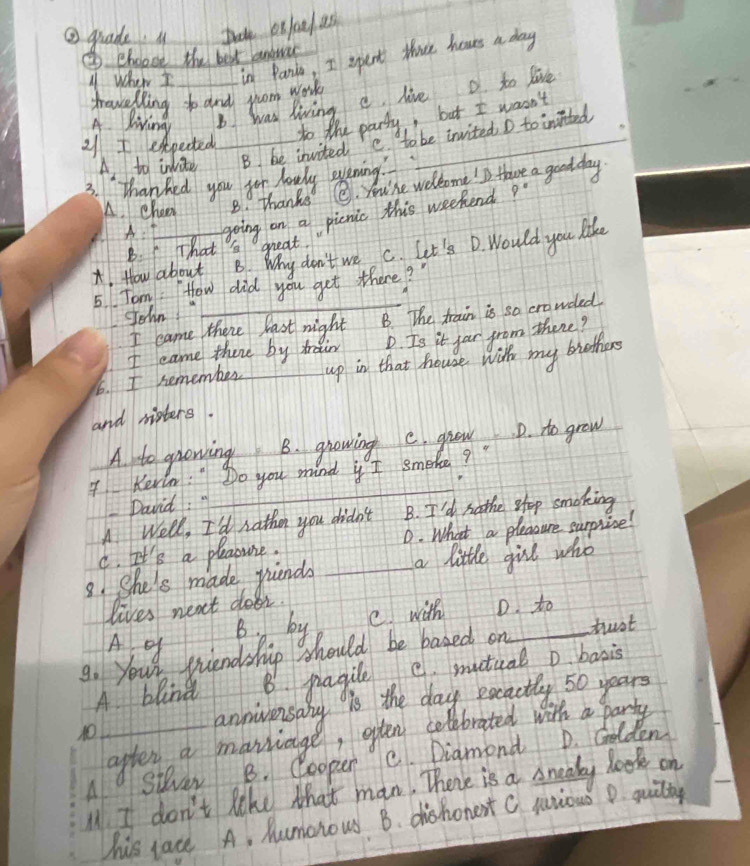 ② grade : 11 Date 08/02/25
① Choose the best answer
1/ When I ______ in Paris, I spent three hours a day
travelling to and from work
A. living B. was living C. live D. to live
2/ I expected ______ to the party, but I wasn't
A. to invite B. be invited C. to be invited D to invited
3. "Thanked you for lovely evening." - ______
A. Cheer B. Thanks C. You're welcome! D Have a good day.
A: "______ going on a picnic this weekend?"
B: "That's great."
A. How about B. Why don't we C. Let's D. Would you like
5. Tom: "How did you get there?"
John: "______"
I came there last night B. The train is so crowded
I came there by train D. Is it far from there?
6. I remember ______ up in that house with my brothers
and sisters.
A. to growing B. growing C. grow D. to grow
7 - Kevin: "Do you mind if I smoke?"
- David: "______"
A. Well, I'd rather you didn't B. I'd rathe stop smoking
C. It's a pleasure. D. What a pleasure surprise!
8. She's made friends ______ a little girl who
lives next door.
A. of B. by C. with D. to
9. Your friendship should be based on ______ trust
A. blind B. fragile C. mutual D. basis
10 ______ anniversary is the day exactly 50 years
after a marriage, often celebrated with a party
A. Silver B. Cooper C. Diamond D. Golden
11. I don't like that man. There is a sneaky look on
his face A. humorous B. dishonest C furious D. guilty